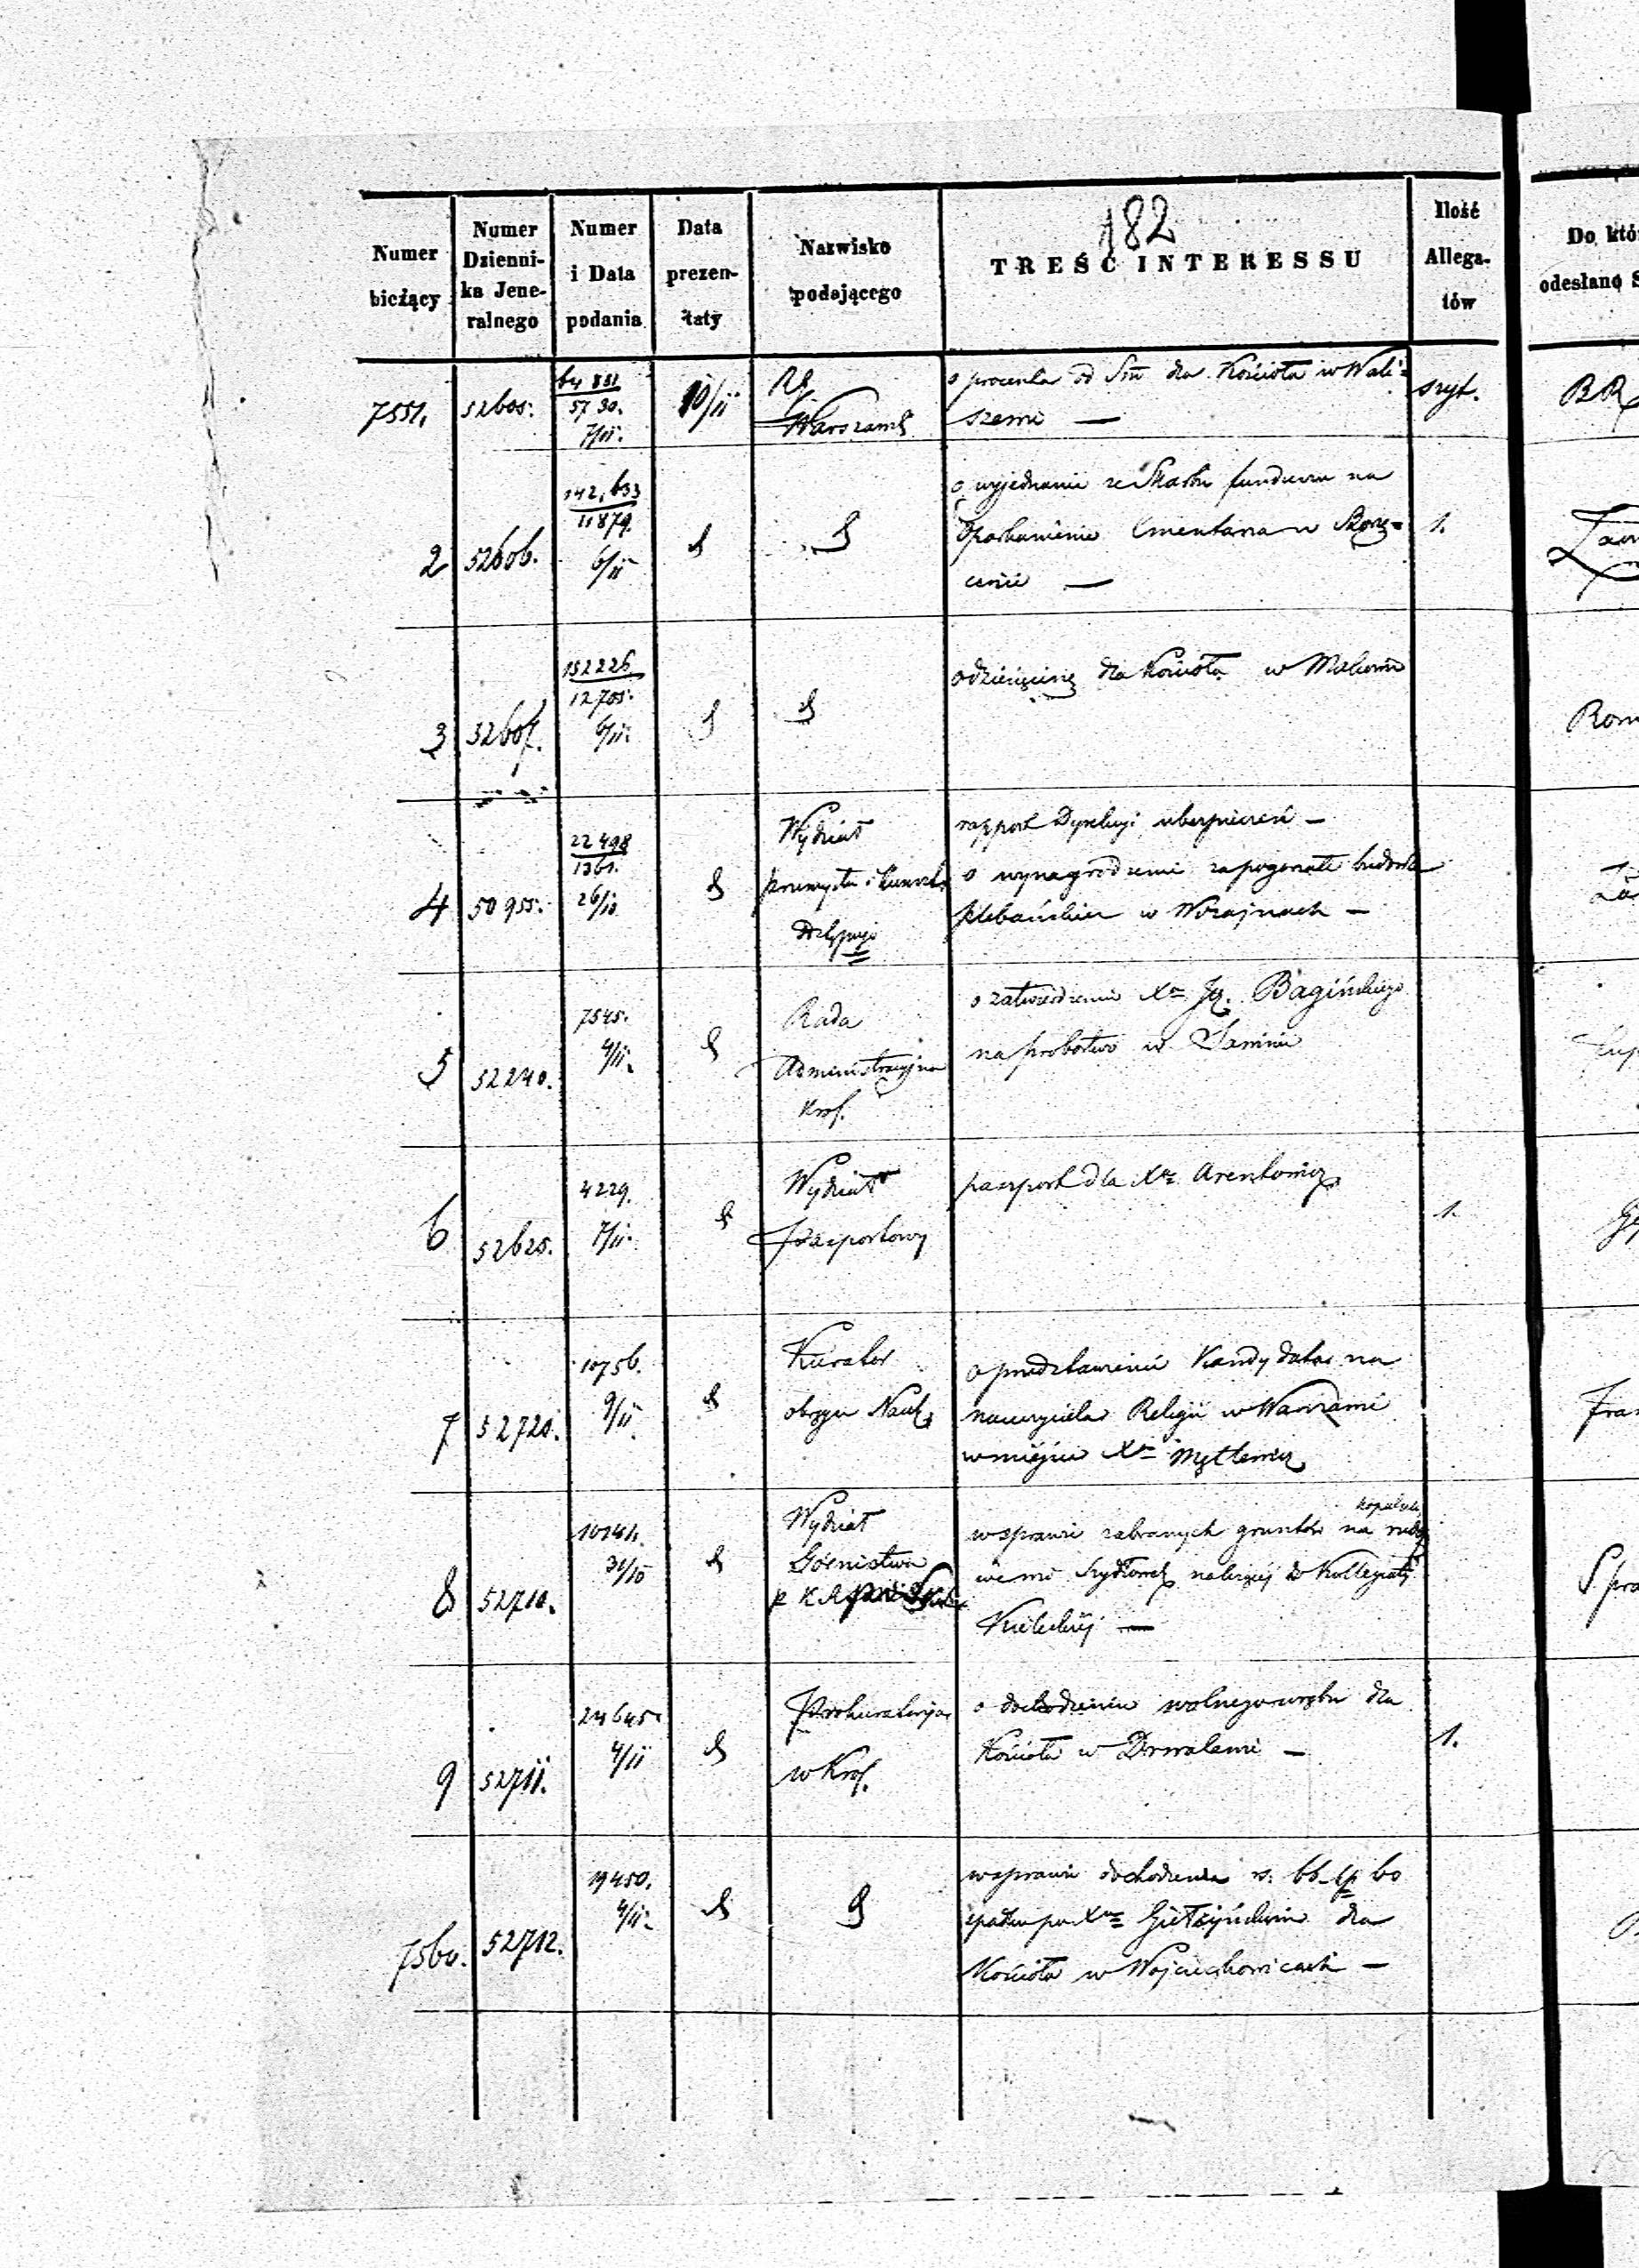 182
Numer bieżący
Numer Dzienni-ka Jene-ralnego
Numer i Data podania
Data prezen-taty
Nazwisko podającego
TREŚĆ INTERESSU
Ilość Allega-tów
Do któ
odesłano S
7551. 52605. 64 831 / 5730. 7/11. 10/11 Rz. Warszaws
o procenta od Sm dla Kościoła w Wali-
szewie —
szyt.
BR
2 52606. 142,633 / 11879. 6/11
o wyjednanie ze Skarbu funduszu na
oparkanienie Cmentarza w
cinie —
1.
3 52607. 152226 / 12705. 6/11.
o dziesięcinę dla Kościoła w Makowie
Rom
4 50955. 22498 / 1361. 26/10 Wydział
przemysłu i
rapport Dyrekcyi ubezpieczeń —
o wynagrodzenie za pogorzałe budowle
plebańskie w —
5 52240. 7545. 4/11. Rada
Administracyjna
Król.
o zatwierdzenie Xa Bagińskiego
na probostwo w Saninie
6 52625. 4229. 7/11. Wydział
Paszportowy
paszport dla Xa Arentowicz
1.
7 52720. 10756. 9/11 Kurator
okręgu Nauk.
o przedstawienie Kandydata na
nauczyciela Religii w Warszawie
w miejsce Xa Mętlewicz
Fran
8 52710. 31/10 Wydział
Górnictwa
kopalnie
w sprawie zabranych gruntów na rudy
we wsi należący do Kollegiaty
Kieleckiej —
Spra
9 52711. 24645. 4/11 Prokuratorija
w Król.
o dochodzeniu wolnego wrębu dla
Kościoła w Drwalewie —
1.
7560. 52712. 19450. 4/11.
w sprawie dochodzenia rs. 66 k 60
spadku po Xu Giełżyńskim dla
Kościoła w Wojciechowicach —